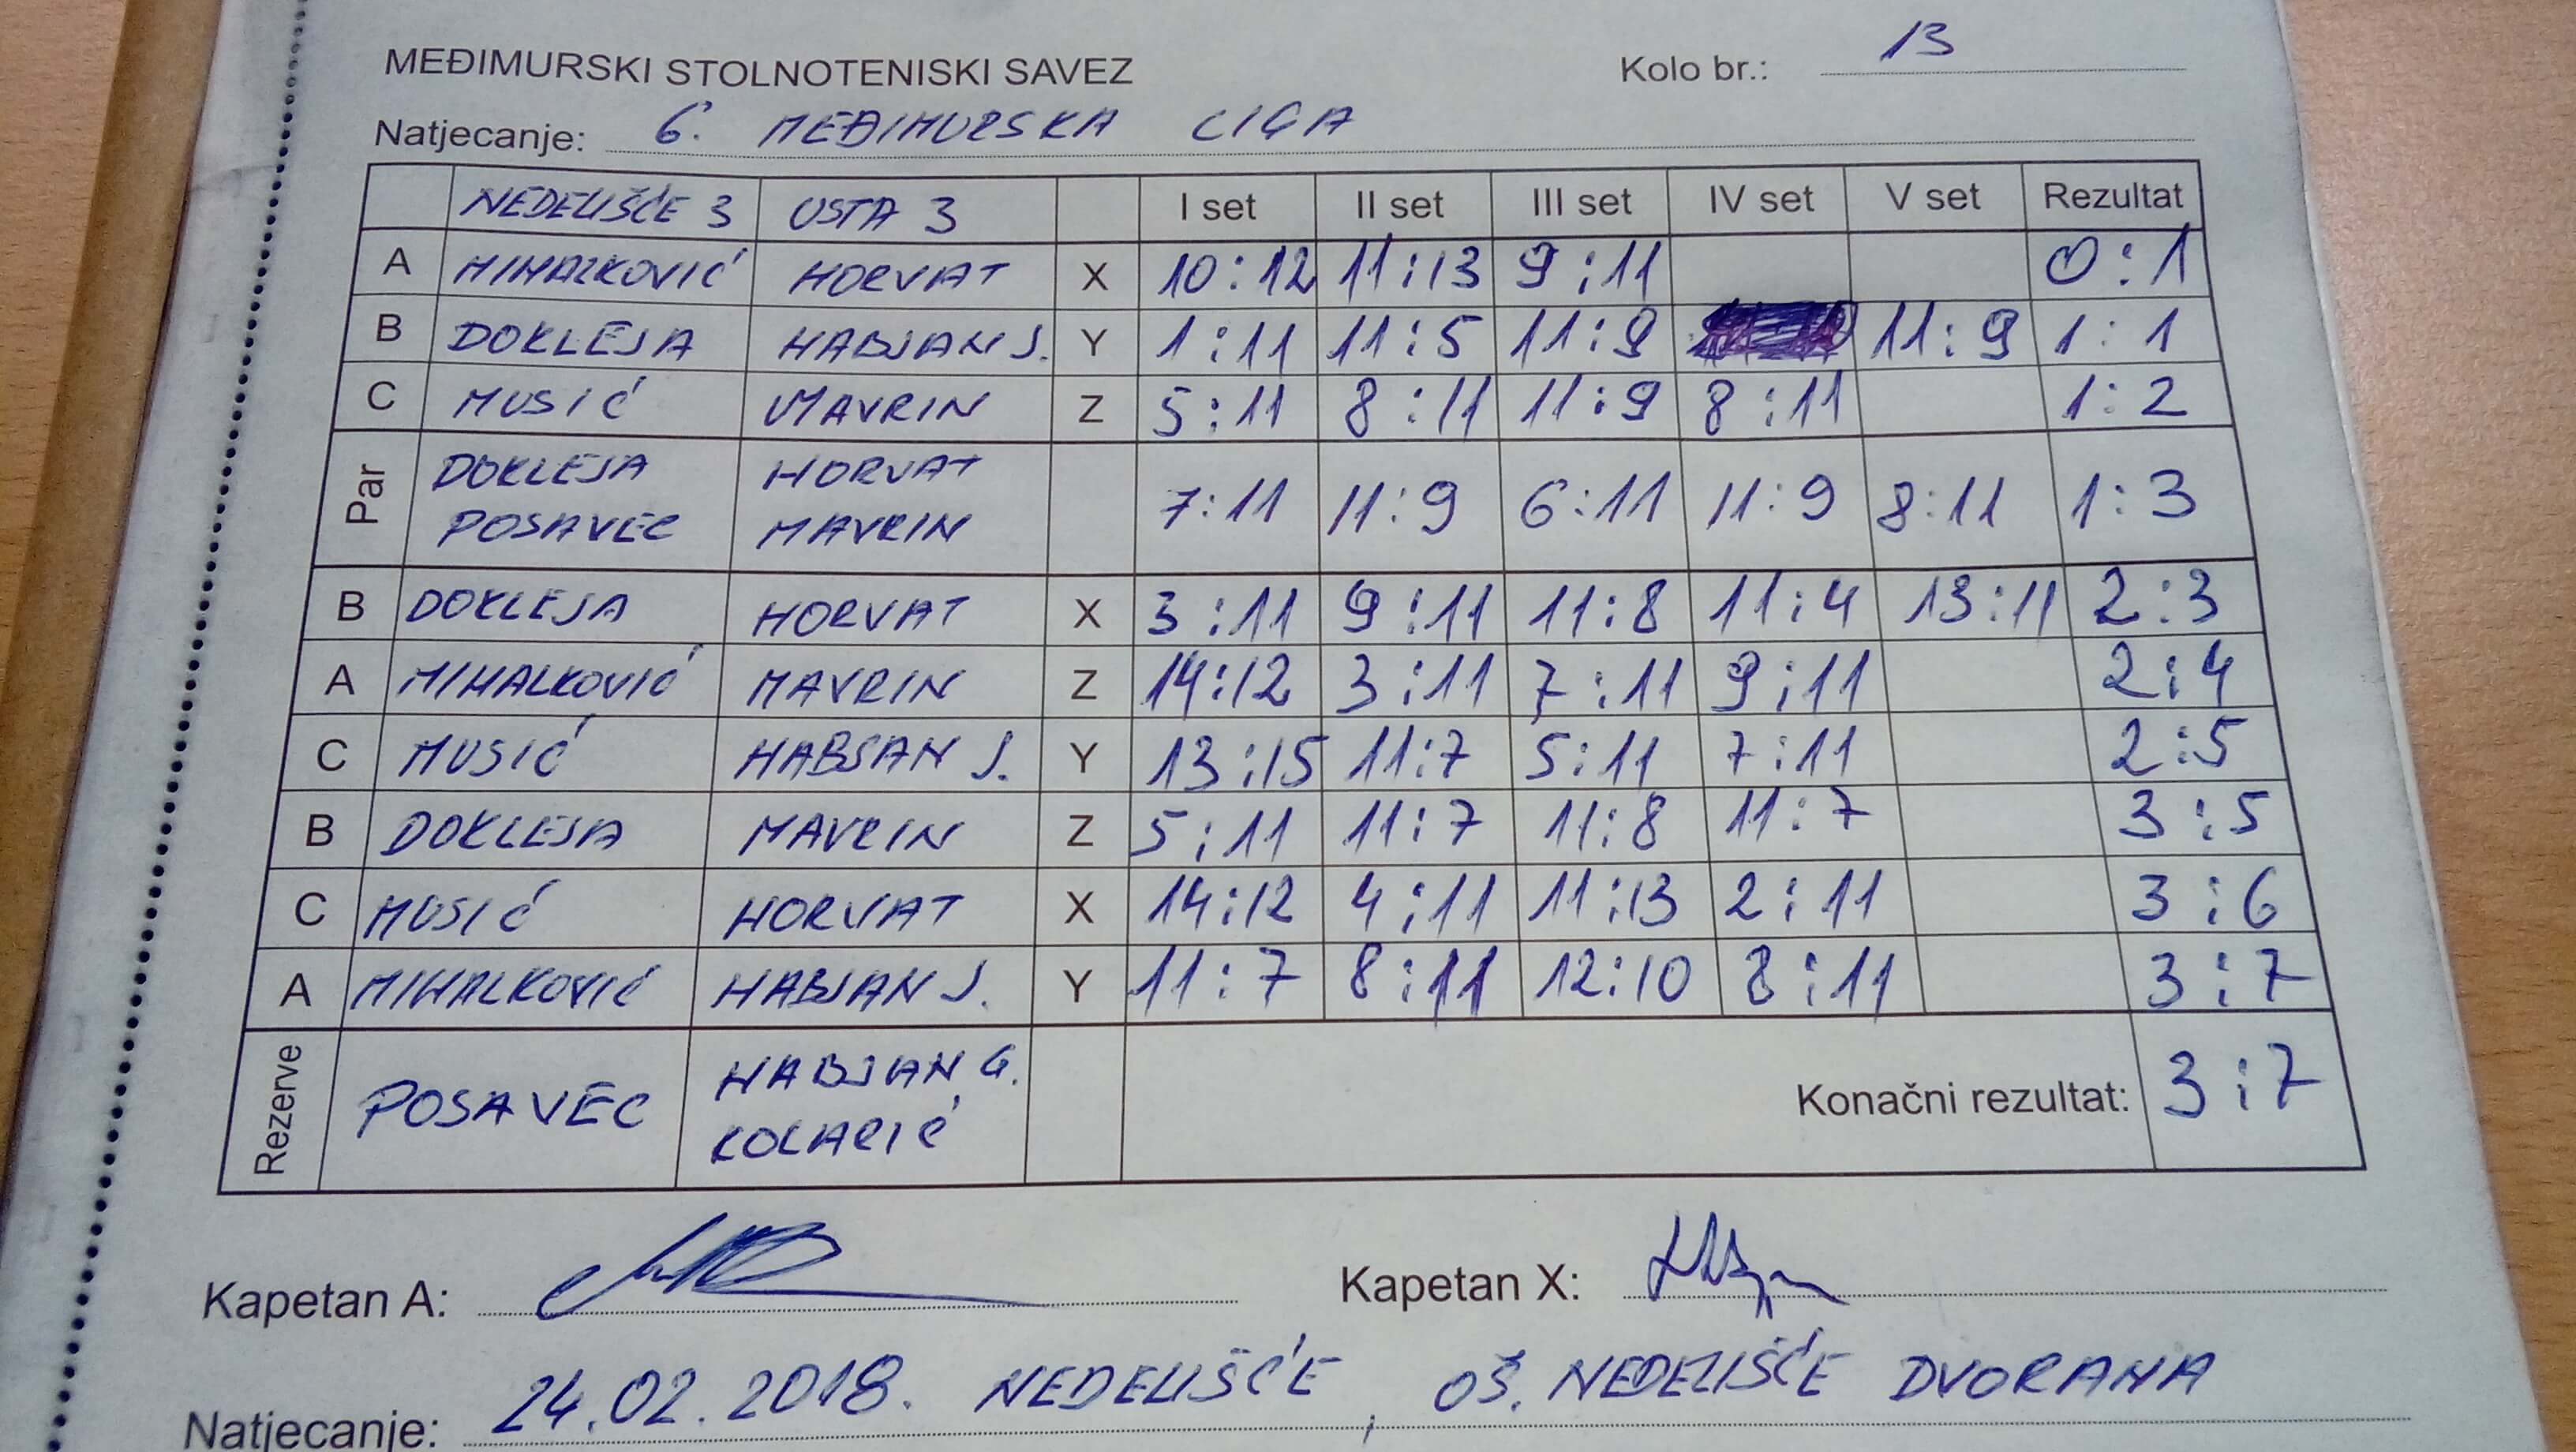 MEĐIMURSKI STOLNOTENISKI SAVEZ Kolo br.: 13
Natjecanje: 6. MEĐIMURSKA LIGA
NEDELIŠĆE 3 USTA 3 I set II set III set IV set V set Rezultat
A MIHALKOVIĆ HORVAT X 10:12 11:13 9:11 0:1
B DOKLEJA HABJAN J. Y 1:11 11:5 11:9 11:9 1:1
C MUSIĆ MAVRIN Z 5:11 8:11 11:9 8:11 1:2
Par DOKLEJA HORVAT
POSAVEC MAVRIN 7:11 11:9 6:11 11:9 8:11 1:3
B DOKLEJA HORVAT X 3:11 9:11 11:8 11:4 13:11 2:3
A MIHALKOVIĆ MAVRIN Z 14:12 3:11 7:11 9:11 2:4
C MUSIĆ HABJAN J. Y 13:15 11:7 5:11 7:11 2:5
B DOKLEJA MAVRIN Z 5:11 11:7 11:8 11:7 3:5
C MUSIĆ HORVAT X 14:12 4:11 11:13 2:11 3:6
A MIHALKOVIĆ HABJAN J. Y 11:7 8:11 12:10 8:11 3:7
Rezerve POSAVEC HABJAN G.
KOLARIĆ Konačni rezultat: 3:7
Kapetan A: Kapetan X:
Natjecanje: 24.02.2018. NEDELIŠĆE, OŠ. NEDELIŠĆE DVORANA